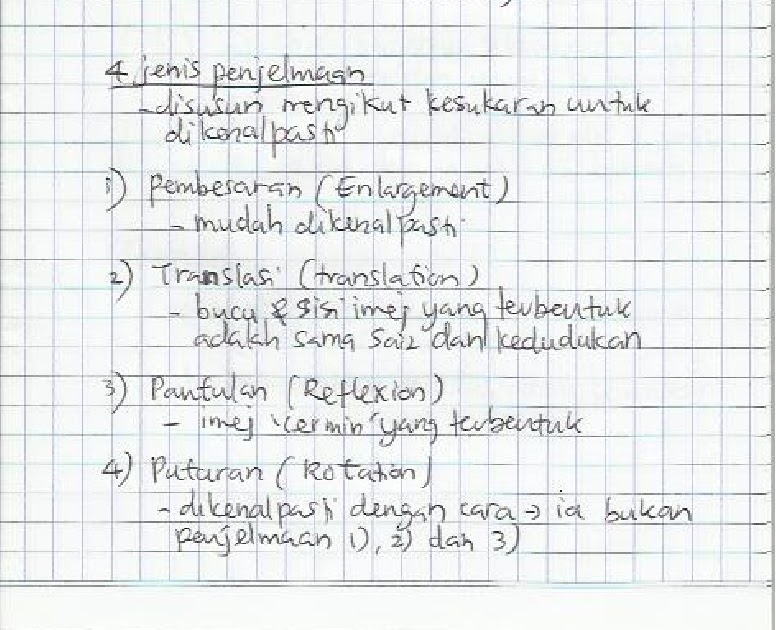 4 jenis penjelmaan
- disusun mengikut kesukaran untuk
dikenalpasti
1) Pembesaran (Enlargement)
- mudah dikenalpasti.
2) Translasi (translation)
- bucu & sisi imej yang terbentuk
adalah sama saiz dan kedudukan
3) Pantulan (Reflexion)
- imej 'cermin' yang terbentuk
4) Putaran (Rotation)
- dikenalpasti dengan cara → ia bukan
penjelmaan 1), 2) dan 3)